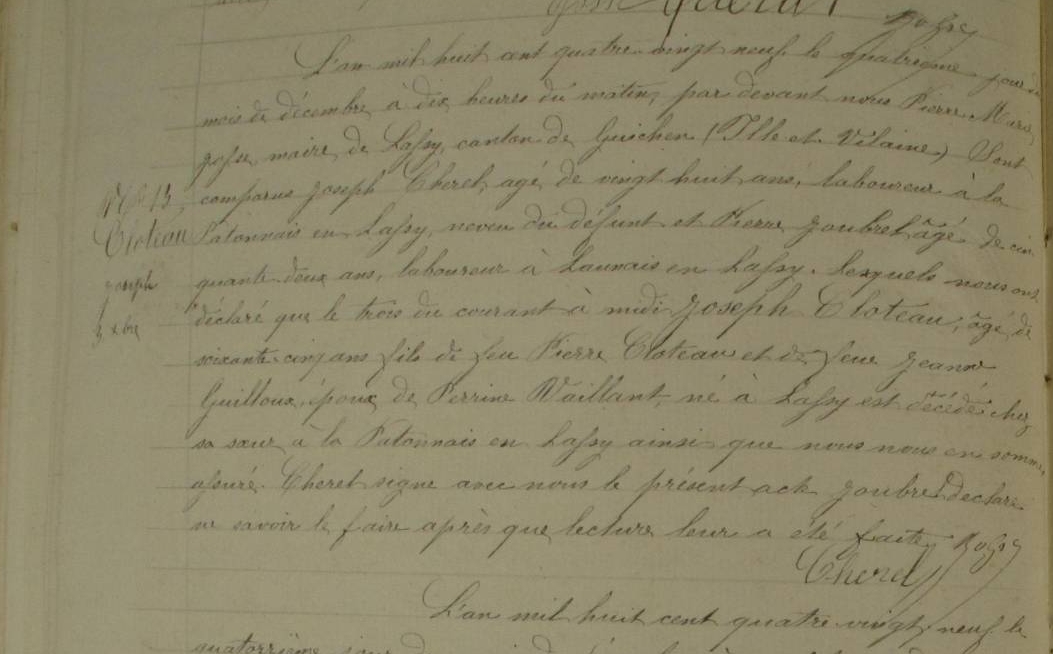 L'an mil huit cent quatre-vingt neuf le quatrième jour du
mois de décembre, à dix heures du matin, par devant nous Pierre Marie
maire de Lassy, canton de Guichen (Ille-et-Vilaine) Sont
comparus Joseph Cherel, agé de vingt huit ans, laboureur à la
Patonnais en Lassy, neveu du défunt et Pierre Joubrel âgé de cin-
quante-deux ans, laboureur à Launais en Lassy. Lesquels nous ont
déclaré que le trois du courant à midi Joseph Cloteau, âgé de
soixante-cinq ans fils de feu Pierre Cloteau et de feue Jeanne
Guilloux, époux de Perrine Vaillant, né à Lassy est décédé chez
sa sœur à la Patonnais en Lassy ainsi que nous nous en sommes
assuré. Cherel signe avec nous le présent acte Joubrel déclare
ne savoir le faire après que lecture leur a été faite
Cherel
N° 13
Cloteau
Joseph
L'an mil huit cent quatre-vingt neuf le
quatorzième jour